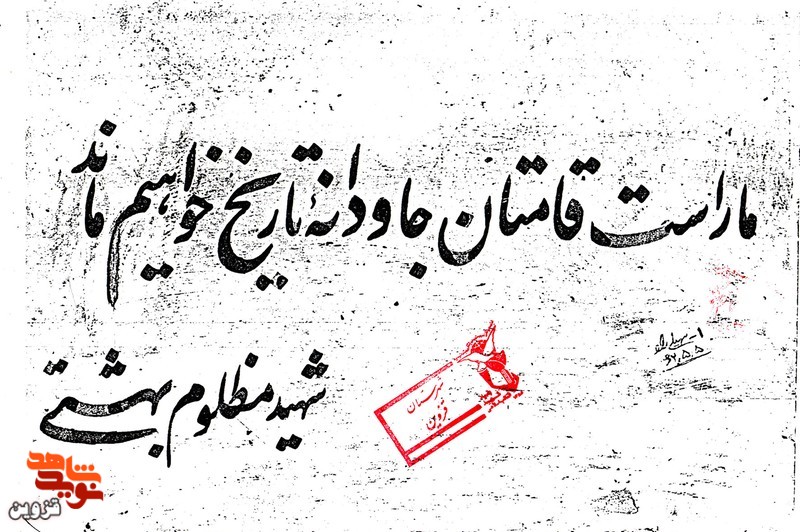 ما راست قامتان جاودانهٔ تاریخ خواهیم ماند
شهید مظلوم بهشتی
شهرستان
قزوین
نوید شاهد
قزوین